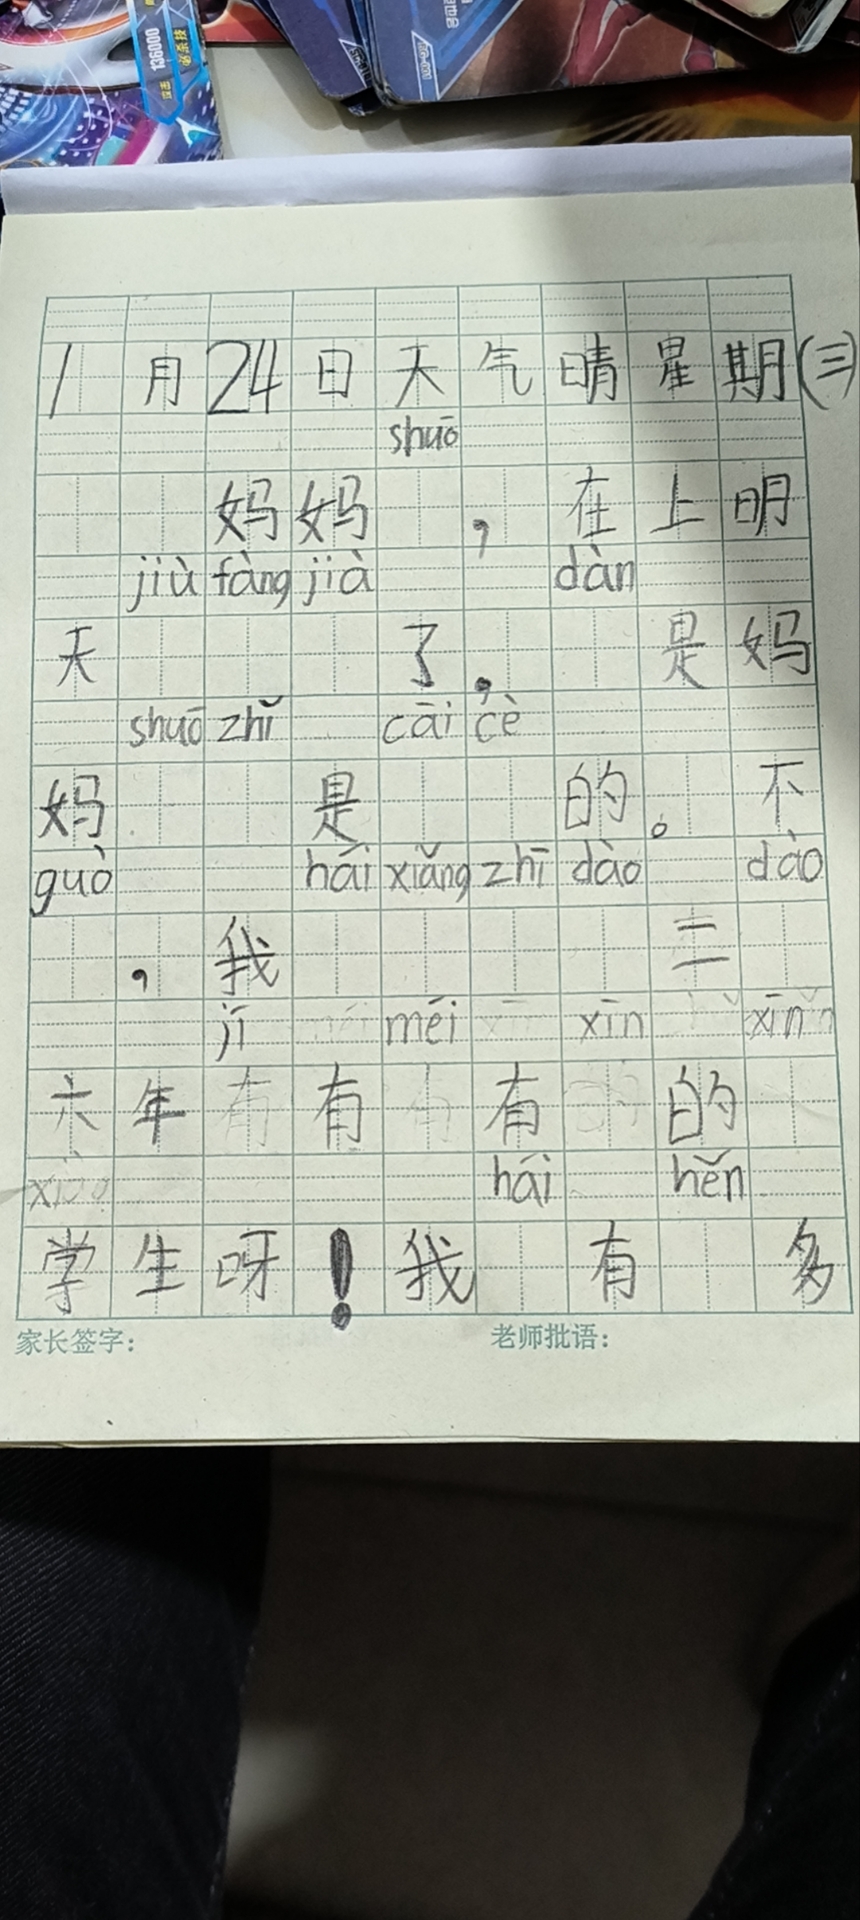 136000
必杀技
1月24日天气晴星期(三)
shuō
妈妈 ，在上明
jiù fàng jià dàn
天 了， 是妈
shuō zhǐ cāi cè
妈 是 的。不
guò hái xiǎng zhī dào dào
，我 二
jǐ méi xīn xīn
六年有有的
hái hěn
学生呀！我 有 多
家长签字： 老师批语：